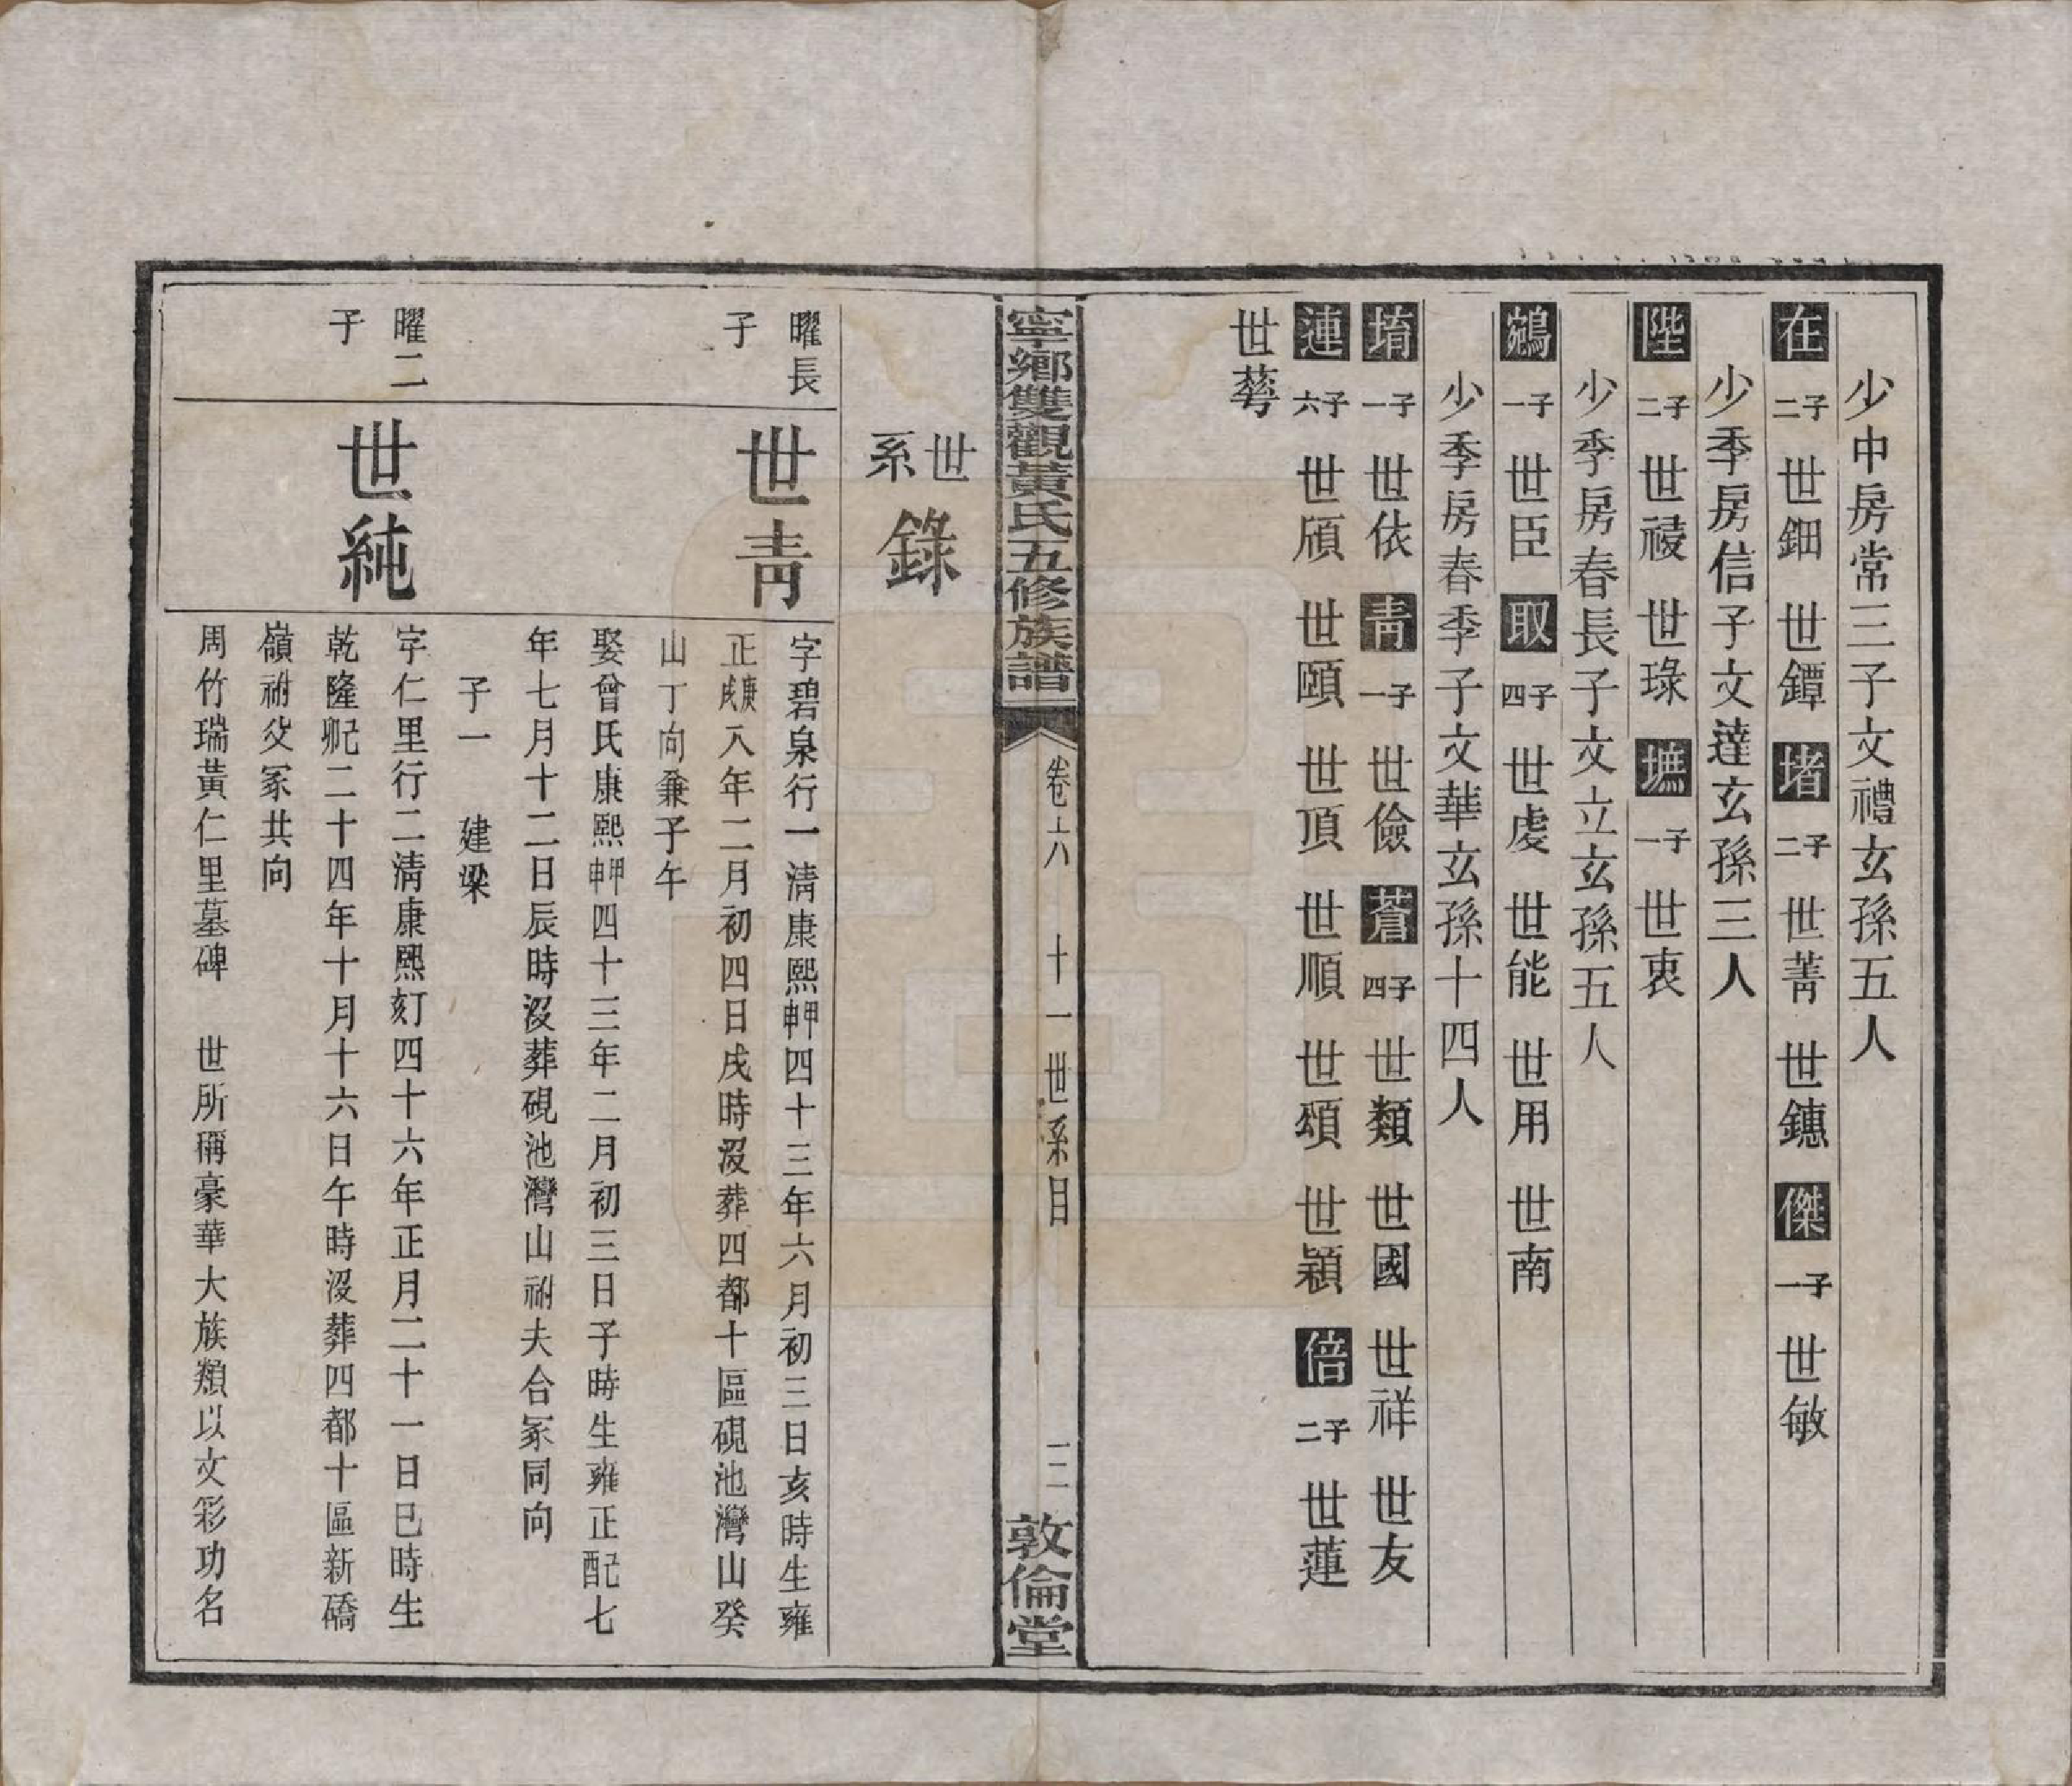 少中房常三子文禮玄孫五人
在 二子 世鈿 世鐔 堵 二子 世菁 世鏸 傑 一子 世敏
少季房信子文達玄孫三人
陛 二子 世祾 世琭 墲 一子 世衷
少季房春長子文立玄孫五人
鵷 一子 世臣 取 四子 世虔 世能 世用 世南
少季房春季子文華玄孫十四人
堉 一子 世依 青 一子 世儉 蒼 四子 世類 世國 世祥 世友
連 六子 世頎 世頤 世頂 世順 世頌 世穎 倍 二子 世蓮
世蕚
寧鄉雙觀黃氏五修族譜 卷六 十一世系目 二 敦倫堂
世系錄
曜長子
世青
字碧泉行一清康熙甲申四十三年六月初三日亥時生雍
正庚戌八年二月初四日戌時沒葬四都十區硯池灣山癸
山丁向兼子午
娶曾氏康熙甲申四十三年二月初三日子時生雍正己酉七
年七月十二日辰時沒葬硯池灣山祔夫合冢同向
子一 建梁
曜二子
世純
字仁里行二清康熙丁亥四十六年正月二十一日巳時生
乾隆己卯二十四年十月十六日午時沒葬四都十區新礄
嶺祔父冢共向
周竹瑞黃仁里墓碑 世所稱豪華大族類以文彩功名